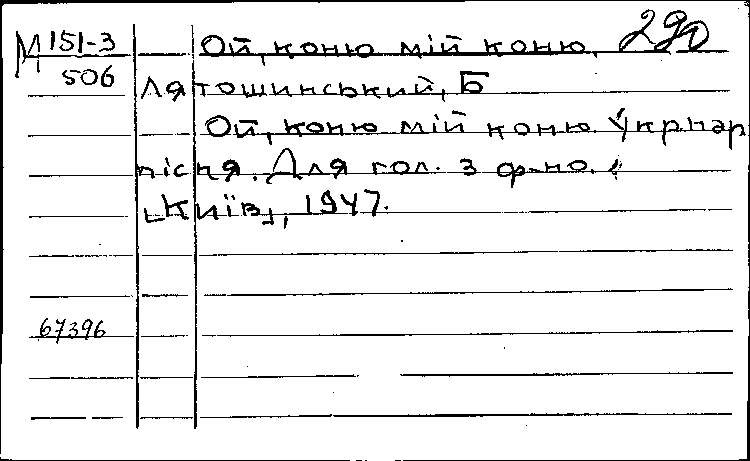 М 151-3 Ой, коню мій коню. 290
506
Лятошинський, Б
Ой, коню мій коню. Укр нар
пісня. Для гол. з ф-но.
[Київ], 1947.
67396